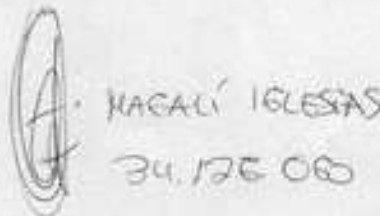 MAGALÍ IGLESIAS
34.126 060